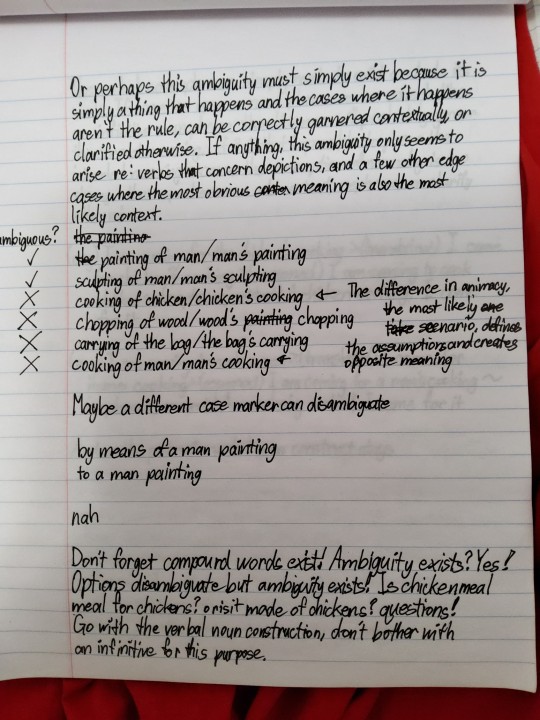 Or perhaps this ambiguity must simply exist because it is
simply a thing that happens and the cases where it happens
aren't the rule, can be correctly garnered contextually, or
clarified otherwise. If anything, this ambiguity only seems to
arise re: verbs that concern depictions, and a few other edge
cases where the most obvious meaning is also the most
likely context.
ambiguous? the painting
✓ the painting of man/man's painting
✓ sculpting of man/man's sculpting
X cooking of chicken/chicken's cooking ← The difference in animacy,
X chopping of wood/wood's painting chopping the most likely one
X carrying of the bag/the bag's carrying take scenario, defines
X cooking of man/man's cooking ← the assumptions and creates
opposite meaning
Maybe a different case marker can disambiguate
by means of a man painting
to a man painting
nah
Don't forget compound words exist! Ambiguity exists? Yes!
Options disambiguate but ambiguity exists! Is chickenmeal
meal for chickens? or is it made of chickens? questions!
Go with the verbal noun construction, don't bother with
an infinitive for this purpose.